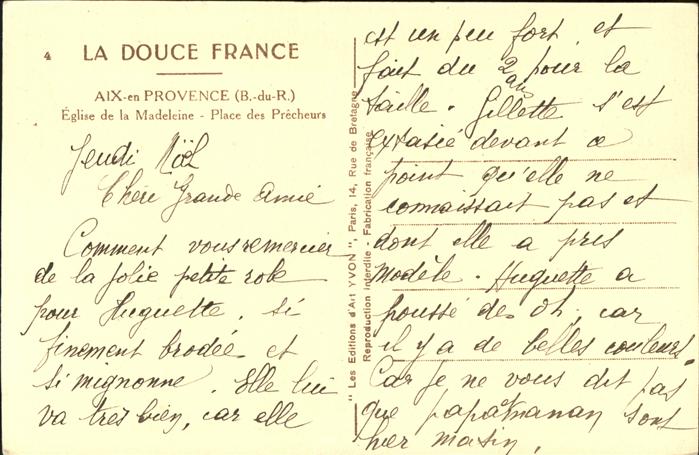 4 LA DOUCE FRANCE
AIX-en PROVENCE (B.-du-R.)
Église de la Madeleine - Place des Prêcheurs
Jeudi Noël
Chère Grande Amie
Comment vous remercier
de la jolie petite robe
pour Huguette. Si
finement brodée et
si mignonne. Elle lui
va très bien, car elle
" Les Editions d'Art YVON ", Paris, 14, Rue de Bretagne
Reproduction interdite - Fabrication française
est un peu fort et
fait du 2 ans pour la
taille. Gillette s'est
extasié devant ce
point qu'elle ne
connaissait pas et
dont elle a pris
modèle. Huguette a
poussé des oh, car
il y a de belles couleurs.
Car je ne vous dit pas
que papa et maman sont
hier matin.